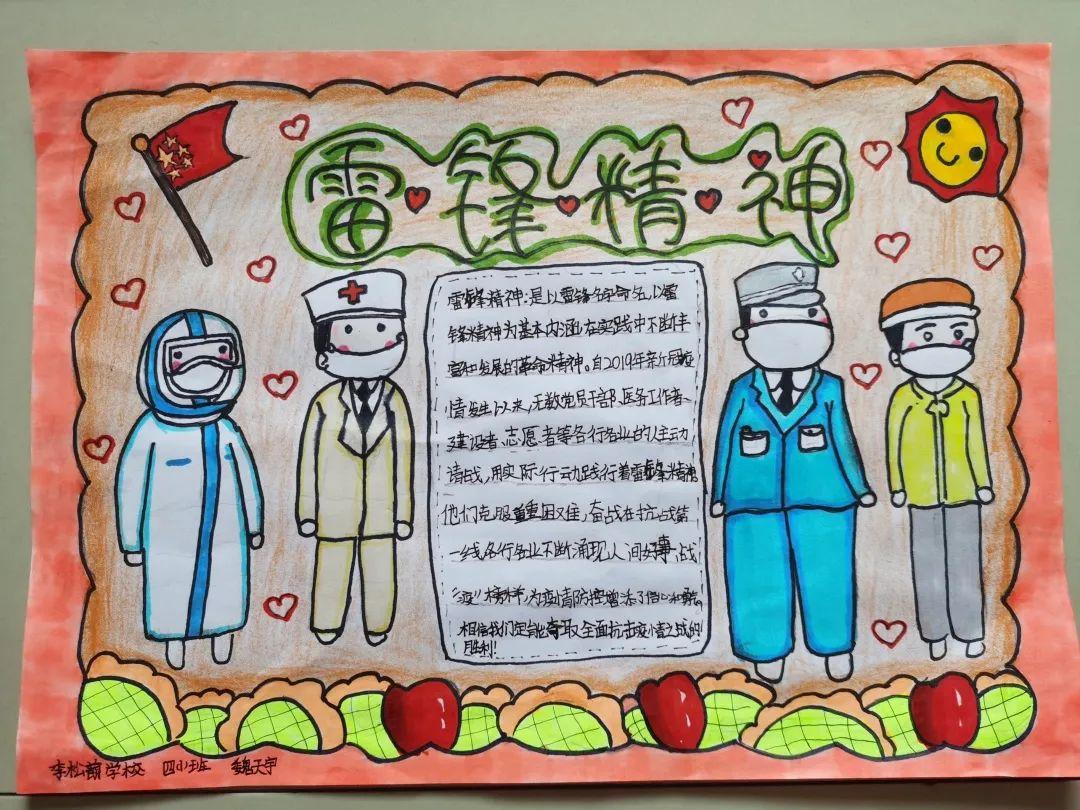 雷锋精神
雷锋精神:是以雷锋名字命名,以雷
锋精神为基本内涵,在实践中不断丰
富和发展的革命精神。自2019年新冠疫
情发生以来,无数党员干部、医务工作者
建设者、志愿者等各行各业的人主动
请战,用实际行动践行着雷锋精神
他们克服重重困难,奋战在抗战第
一线各行各业不断涌现人间好事,战
“疫”榜样,为疫情防控增添了信心和
相信我们定能夺取全面抗击疫情之战的
胜利!
李松蓢学校 四(1)班 魏天宇